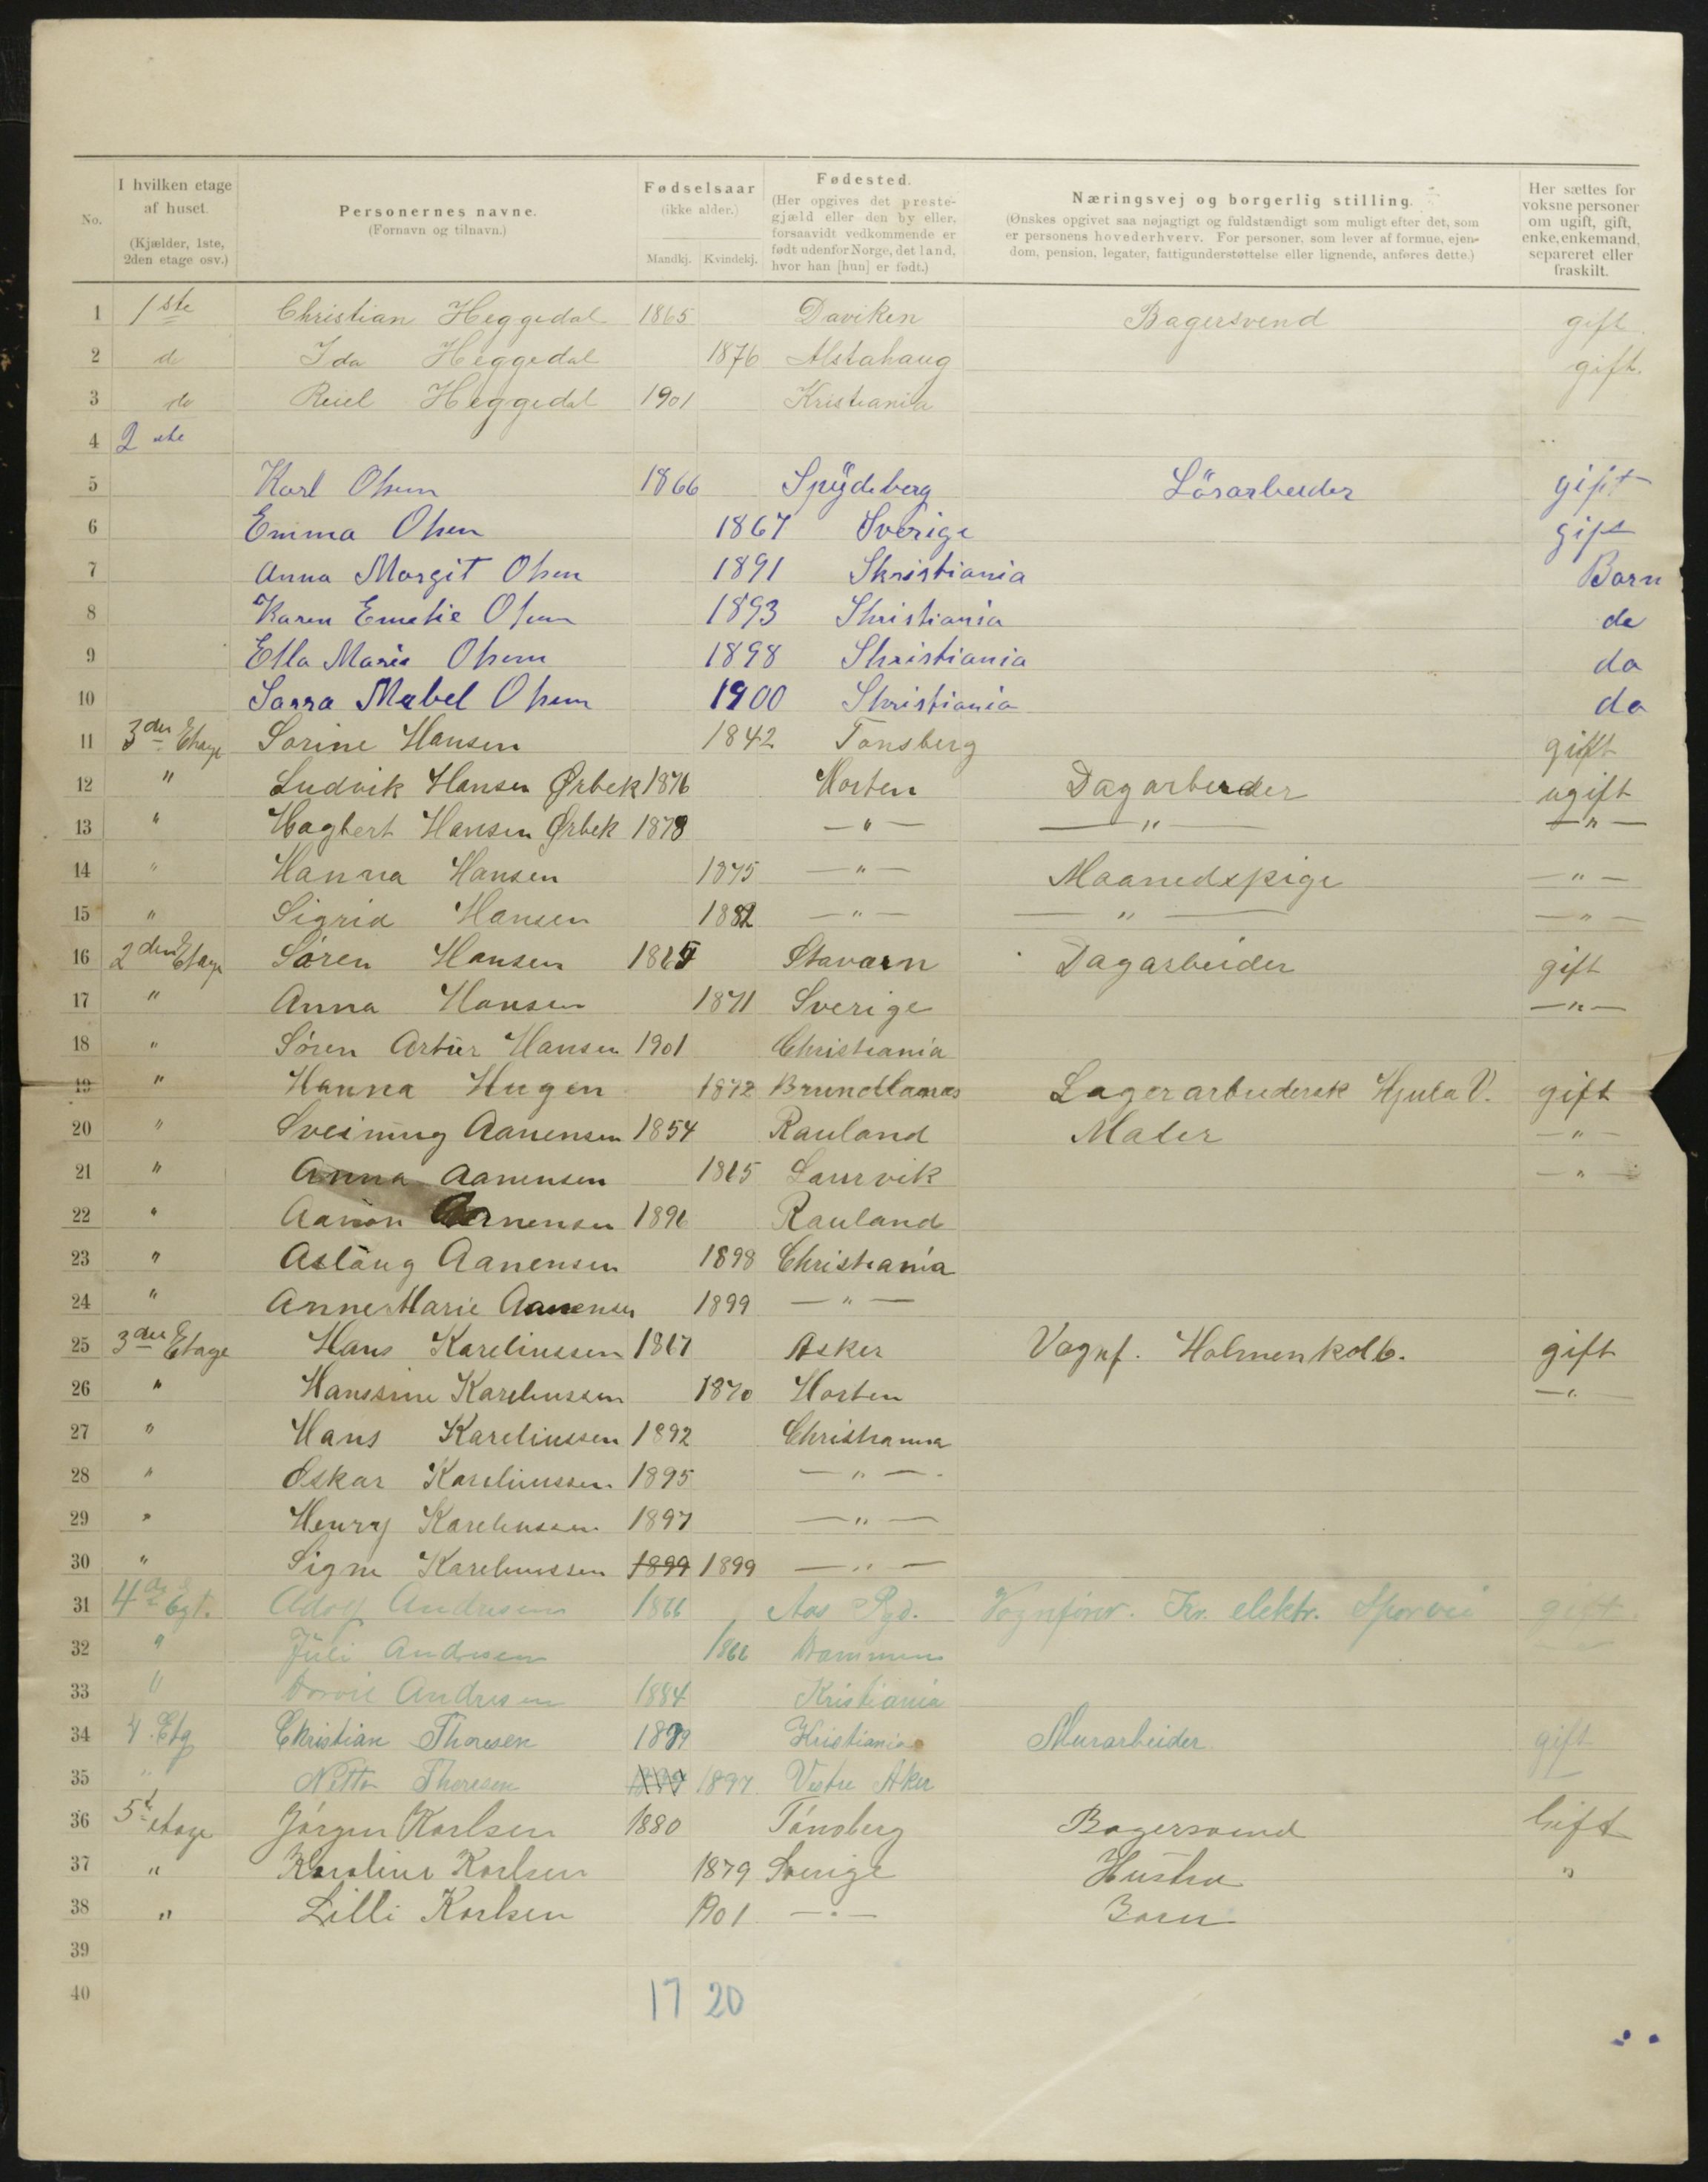 No.
I hvilken etage af huset. (Kjælder, 1ste, 2den etage osv.)
Personernes navne. (Fornavn og tilnavn.)
Fødselsaar (ikke alder.) Mandkj. Kvindekj.
Fødested. (Her opgives det prestegjæld eller den by eller, forsaavidt vedkommende er født udenfor Norge, det land, hvor han [hun] er født.)
Næringsvej og borgerlig stilling. (Ønskes opgivet saa nøjagtigt og fuldstændigt som muligt efter det, som er personens hovederhverv. For personer, som lever af formue, ejendom, pension, legater, fattigunderstøttelse eller lignende, anføres dette.)
Her sættes for voksne personer om ugift, gift, enke, enkemand, separeret eller fraskilt.
1 1ste Christian Heggedal 1865 Daviken Bagersvend gift
2 d Ida Heggedal 1876 Alstahaug gift.
3 do Reiel Heggedal 1901 Kristiania
4 2
5 Karl Olsen 1866 Spÿdeberg Lösarbeider gift
6 Emma Olsen 1867 Sverige gift
7 Anna Margit Olsen 1891 Skristiania Barn
8 Karen Emelie Olsen 1893 Skristiania do
9 Ella Marie Olsen 1898 Skristiania do
10 Sarra Mabel Olsen 1900 Skristiania do
11 3die Etage Sorine Hansen 1842 Tonsberg gift
12 " Ludvik Hansen Ørbek 1876 Horten Dagarbeider ugift
13 " Hagbert Hansen Ørbek 1878 — " — — " — — " —
14 " Hanna Hansen 1875 — " — Maanedspige — " —
15 " Sigrid Hansen 1882 — " — — " — — " —
16 2den Etage Søren Hansen Stavarn Dagarbeider gift
17 " Anna Hansen 1871 Sverige — " —
18 " Sören Artur Hansen 1901 Christiania
19 " Hanna Hugen 1872 Brundlanæs Lagerarbeidersk Hjula V. gift
20 " Sveinung Aanensen 1854 Rauland Maler — " —
21 " Anna Aanensen 1865 Laurvik — " —
22 " Aanon Aanensen 1896 Rauland
23 " Aslaug Aanensen 1898 Christiania
24 " Anne Marie Aanensen 1899 — " —
25 3die Etage Hans Kareliussen 1867 Asker Vognf. Holmenkolb. gift
26 " Hanssine Kareliussen 1870 Horten — " —
27 " Hans Kareliussen 1892 Christiania
28 " Oskar Kareliussen 1895 — " —
29 " Henry Kareliussen 1897 — " —
30 " Signe Kareliussen 1899 1899 — " —
31 4de Etg. Adolf Andresen 1866 Aas Pgd. Vognfører. Kr. elektr. Sporvei gift
32 " Juli Andresen 1866 Drammen
33 " Andresen 1884 Kristiania
34 4. Etg Christian Thoresen Kristiania Murarbeider gift
35 " Thoresen 1897. Vestre Aker
36 5t etage Jörgen Karlsen 1880 Tönsberg Bagersvend Gift
37 " Karoline Karlsen 1879 Sverige Hustru "
38 " Lilli Karlsen 1901 — " — Barn
39
40
17 20